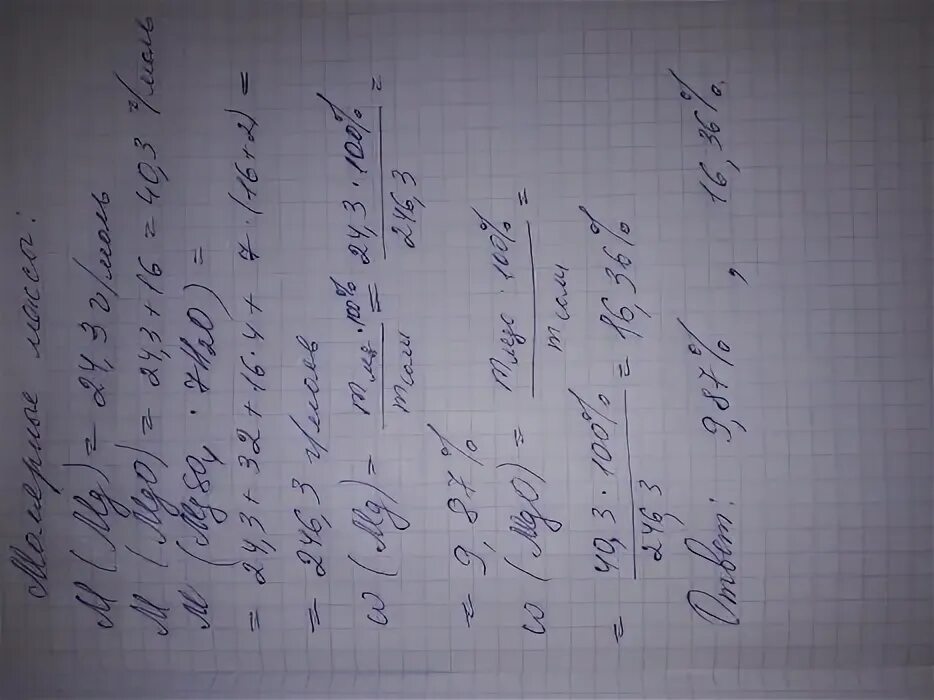 Молярные массы:
M (Mg) = 24,3 г/моль
M (MgO) = 24,3 + 16 = 40,3 г/моль
M (MgSO4 · 7H2O) =
= 24,3 + 32 + 16·4 + 7·(16+2) =
= 246,3 г/моль
w (Mg) = mMg·100% / mсоли = 24,3·100% / 246,3 =
= 9,87%
w (MgO) = mMgO·100% / mсоли =
= 40,3·100% / 246,3 = 16,36%
Ответ: 9,87%, 16,36%